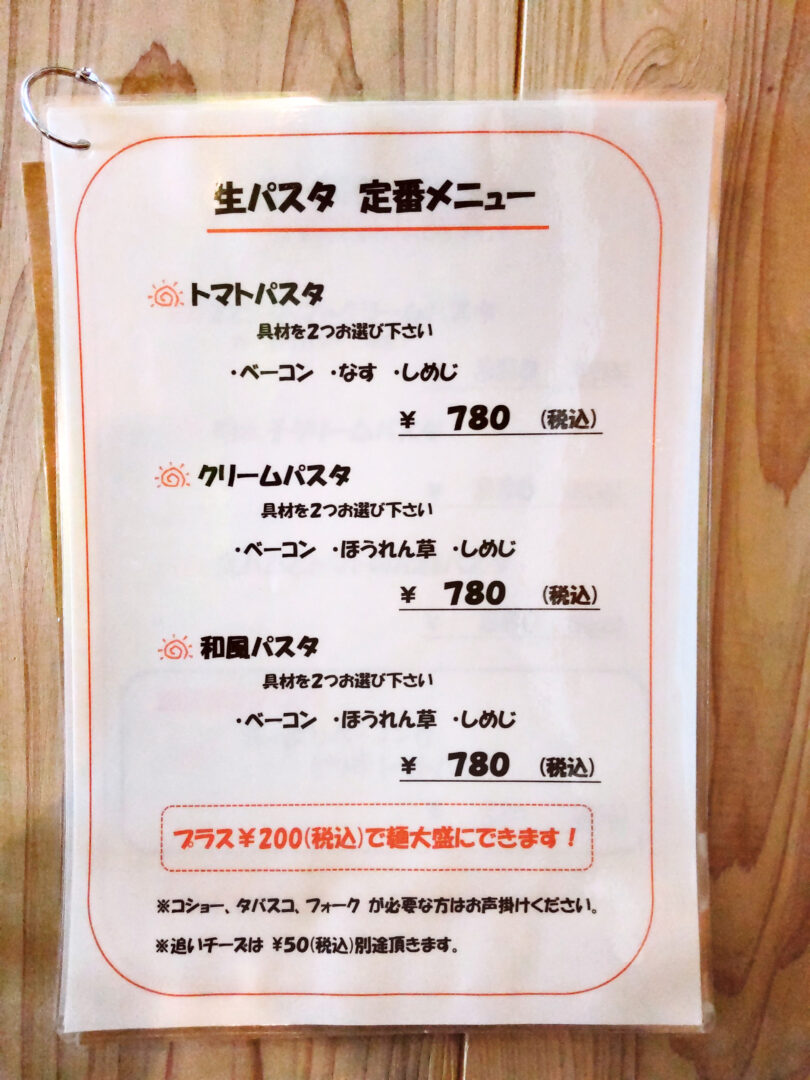 生パスタ 定番メニュー
トマトパスタ
具材を2つお選び下さい
・ベーコン ・なす ・しめじ
¥ 780 (税込)
クリームパスタ
具材を2つお選び下さい
・ベーコン ・ほうれん草 ・しめじ
¥ 780 (税込)
和風パスタ
具材を2つお選び下さい
・ベーコン ・ほうれん草 ・しめじ
¥ 780 (税込)
プラス¥200(税込)で麺大盛にできます!
※コショー、タバスコ、フォーク が必要な方はお声掛けください。
※追いチーズは ¥50(税込)別途頂きます。